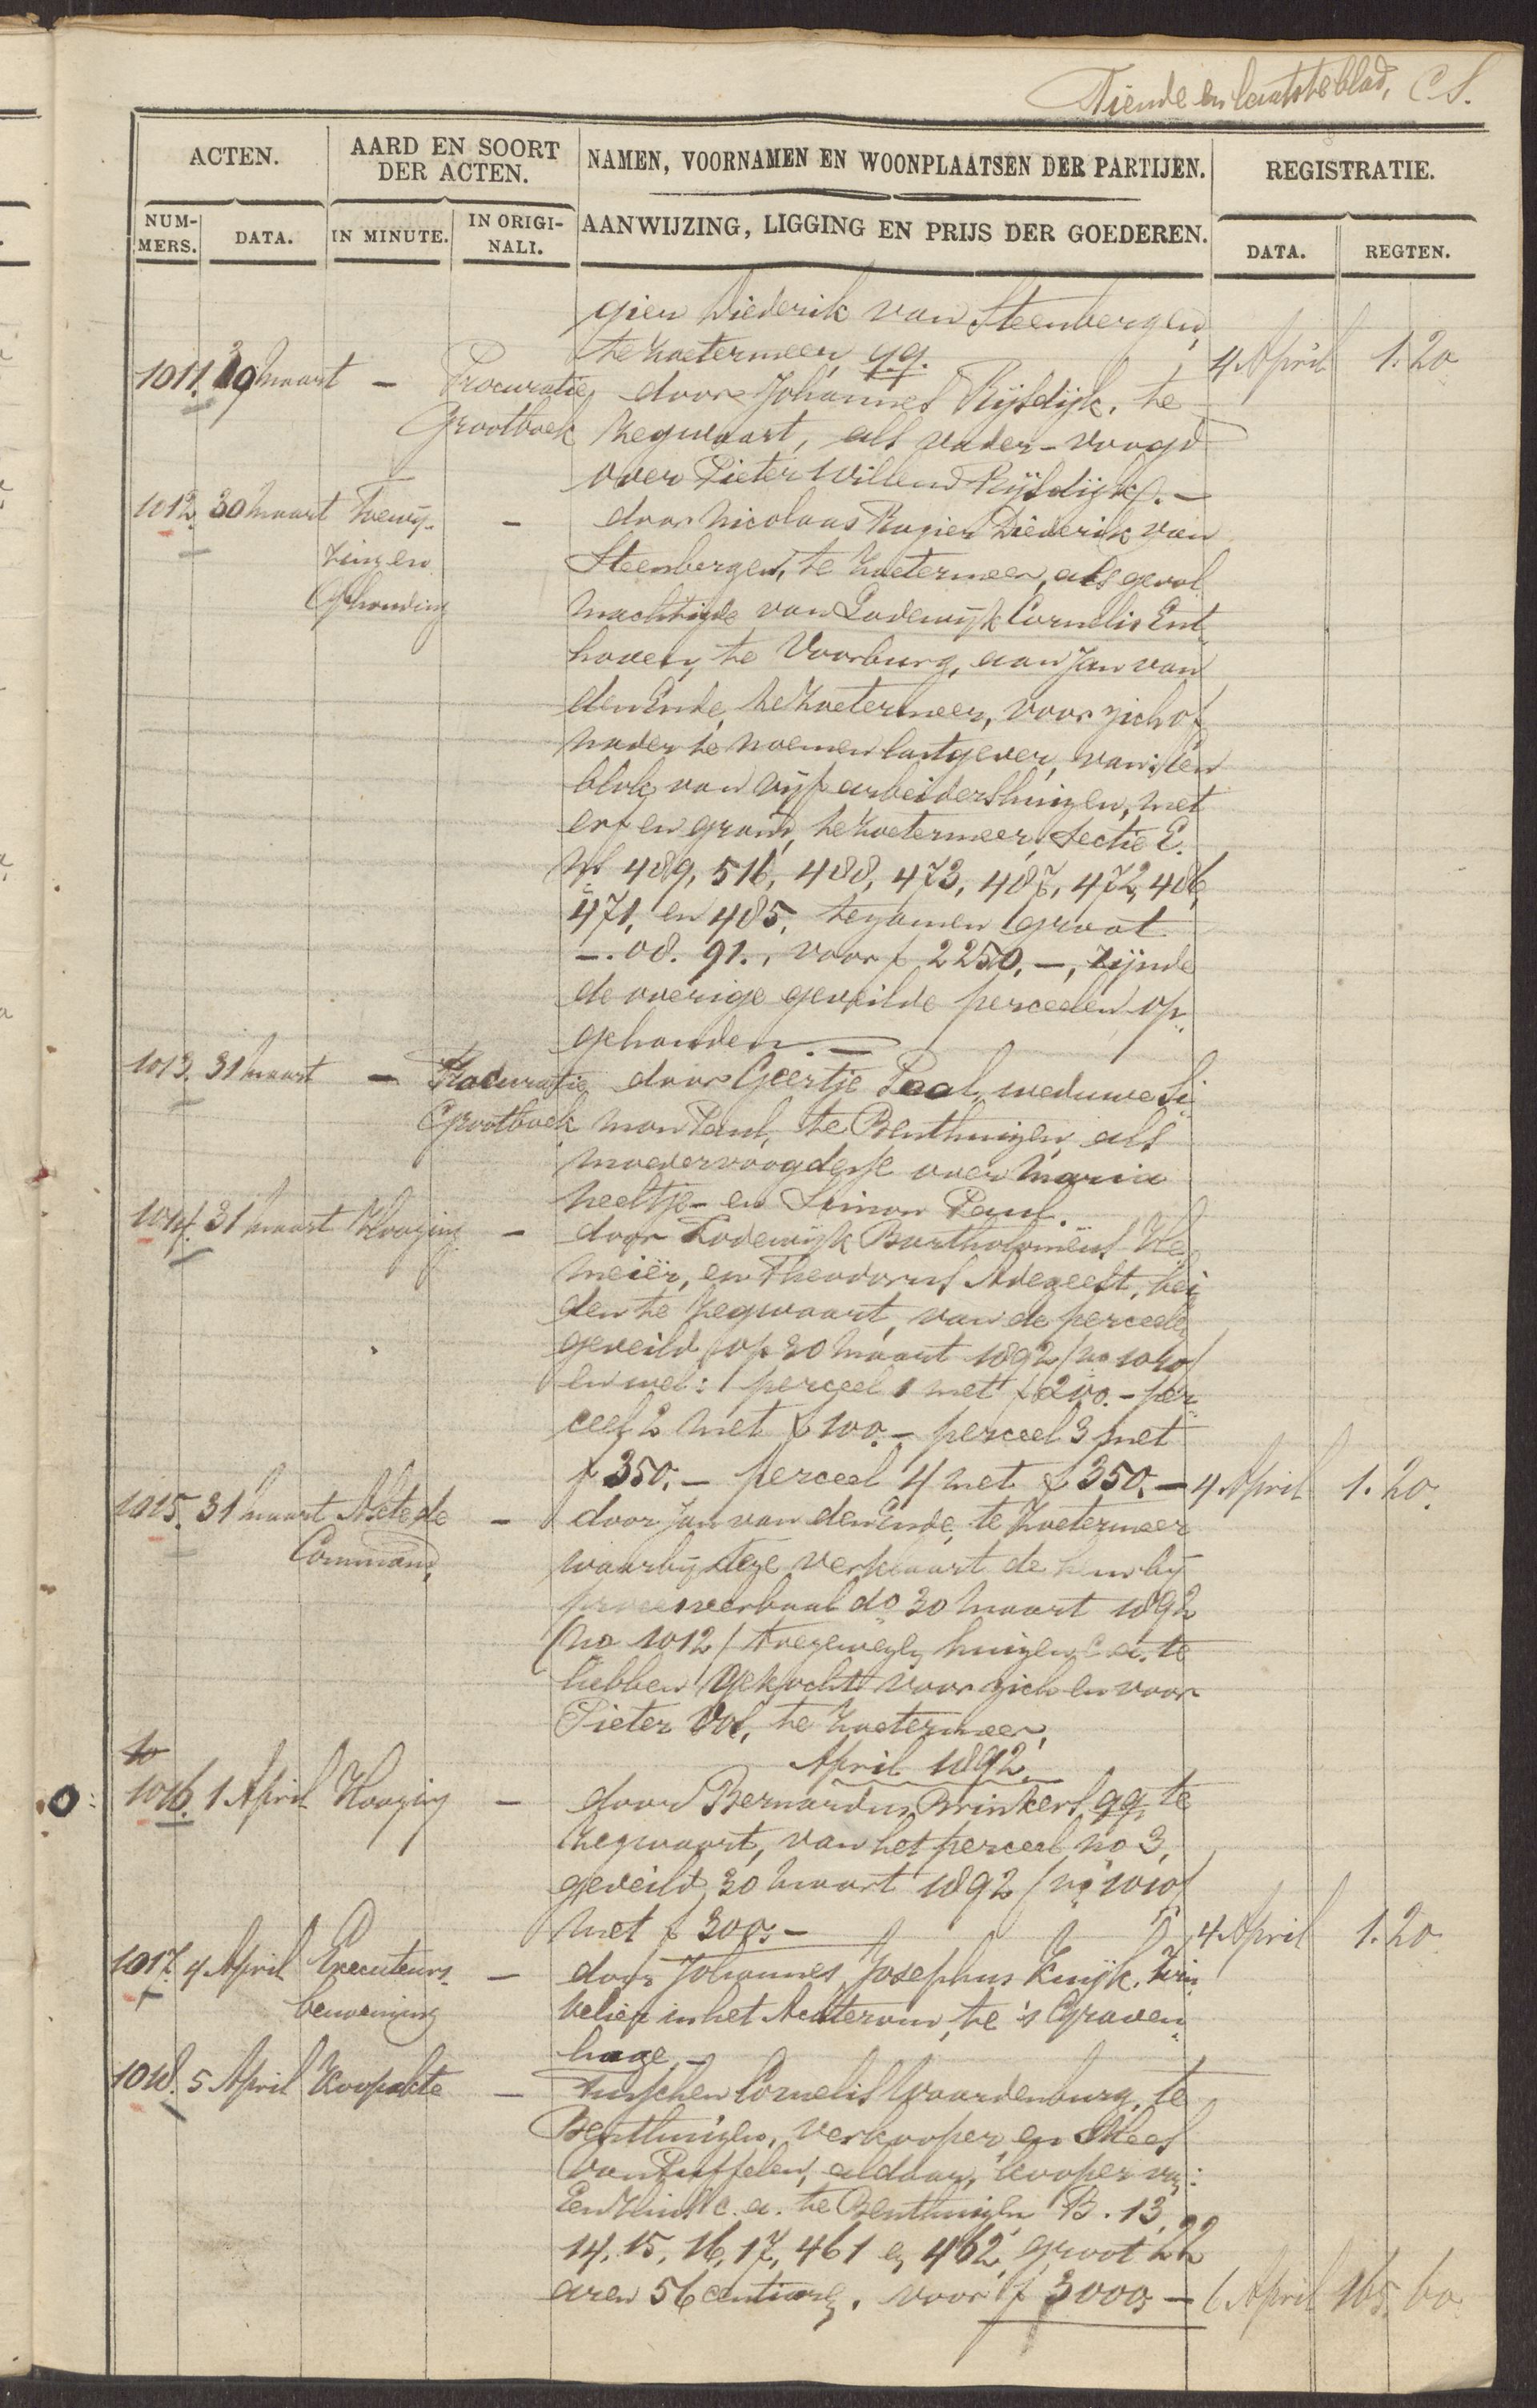 Tiende en laatste blad, C S.
ACTEN.
AARD EN SOORT DER ACTEN.
NAMEN, VOORNAMEN EN WOONPLAATSEN DER PARTIJEN.
REGISTRATIE.
NUM-MERS.
DATA.
IN MINUTE.
IN ORIGI-NALI.
AANWIJZING, LIGGING EN PRIJS DER GOEDEREN.
DATA.
REGTEN.
gier Diederik van Steenbergen,
te Zoetermeer, q.q. 4 April 1.20
1011. 29 Maart - Procuratie door Johannes Rijsdijk, te
Grootboek Zegwaart, als vader-voogd
over Pieter Willem Rijsdijk. -
1012. 30 Maart Toewij- - door Nicolaas Rogier Diederik van
zing en Steenbergen, te Zoetermeer, als gevol
Ophouding machtigde van Lodewijk Cornelis Ent
hoven, te Voorburg, aan Jan van
den Ende, te Zoetermeer, voor zich of
nader te noemen lastgever, van: een
blok van vijf arbeidershuizen, met
erf en grond, te Zoetermeer, Sectie E.
Ns 489, 516, 488, 473, 487, 472, 486,
471, en 485, tezamen groot
-. 08. 91., voor f 2250.-, zijnde
de overige geveilde perceelen op
gehouden. -
1013. 31 Maart - Procuratie door Geertje Paal, weduwe Si
Grootboek mon Paul, te Benthuizen, als
moedervoogdesse over Maria
Neeltje - en Simon Paul.
1014. 31 Maart Hooging - door Lodewijk Bartholomeus
meiër, en Theodorus Adegeest, bei
den te Zegwaart, van de perceele
geveild op 30 Maart 1892 / no 1010/
en wel: perceel 1 met f 200.- per
ceel 2 met f 100.- perceel 3 met
f 350.- perceel 4 met f 350.- 4 April 1.20.
1015. 31 Maart Akte de - door Jan van den Ende, te Zoetermeer
Command, waarbij deze verklaart de hem bij
procesverbaal do 30 Maart 1892
(no 1012/ toegewezen huizen c.a. te
hebben gekocht voor zich en voor
Pieter Vol, te Zoetermeer.
April 1892.
1016. 1 April Hooging - door Bernardus Brinkers, qq, te
Zegwaart, van het perceel no 3,
geveild 30 Maart 1892 / no 1010/
met f 300.- 4 April 1.20.
1017. 4 April Executeurs- - door Johannes Josephus Kuijk, win
benoeming kelier in het Achterom, te 's Graven
hage. -
1018. 5 April Koopakte - tusschen Cornelis Waardenburg, te
Benthuizen, verkooper, en Mees
van Puffelen, aldaar, kooper van:
Een Huis c.a. te Benthuizen B. 13,
14, 15, 16, 17, 461 en 462, groot 22
aren 56 centiaren, voor f 3000.- 6 April 165.60.